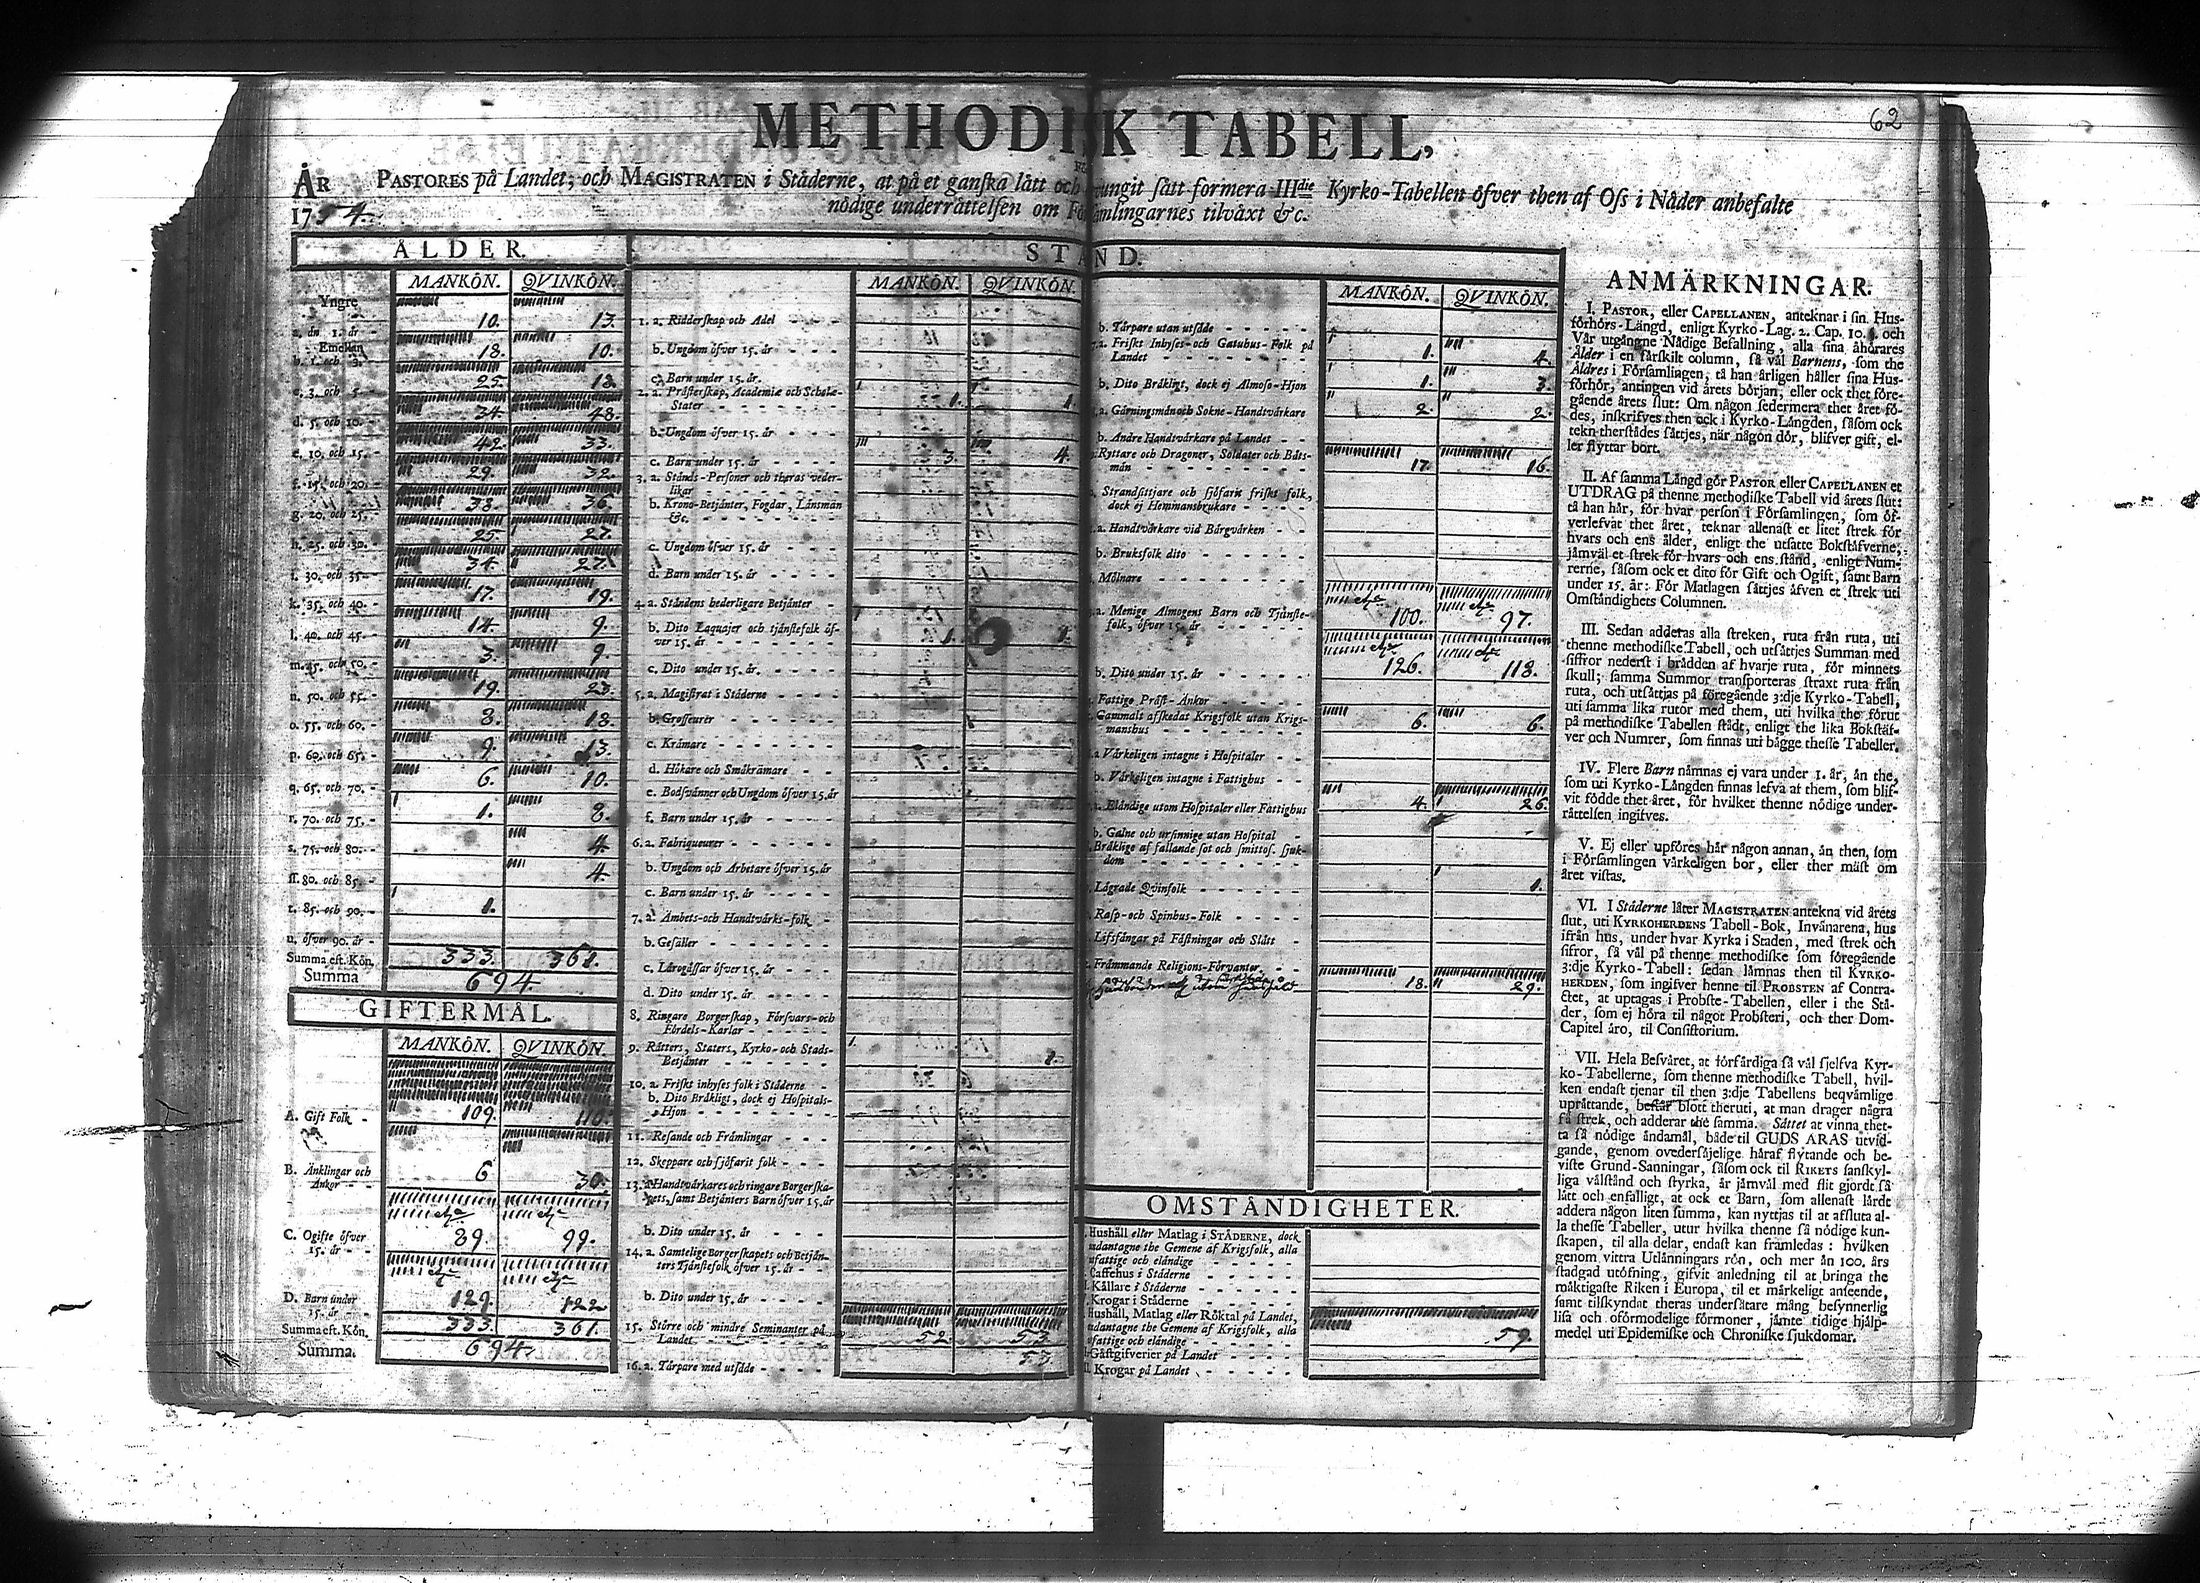 62
METHODISK TABELL,
ÅR PASTORES på Landet, och MAGISTRATEN i Städerne, at på et ganska lätt och ungit sätt formera IIIdie Kyrko-Tabellen öfver then af Oss i Nåder anbefalte
1754. nödige underrättelsen om Församlingarnes tilväxt &c.
ÅLDER.
MANKÖN. QVINKÖN.
Yngre
a. än 1. år - 10. 13.
Emellan
b. 1. och 3. 18. 10.
c. 3. och 5. 25. 18.
d. 5. och 10. 34. 48.
e. 10. och 15. 42. 33.
f. 15. och 20. 29. 32.
g. 20. och 25. 38. 36.
h. 25. och 30. 25. 27.
i. 30. och 35. 34. 27.
k. 35. och 40. 17. 19.
l. 40. och 45. 14. 9.
m. 45. och 50. 3. 9.
n. 50. och 55. 19. 23.
o. 55. och 60. 8. 18.
p. 60. och 65. 9. 13.
q. 65. och 70. 6. 10.
r. 70. och 75. 1. 8.
s. 75. och 80. 4.
ss. 80. och 85. 4.
t. 85. och 90. 1.
u. öfver 90. år -
Summa eft. Kön. 333. 361.
Summa 694.
GIFTERMÅL.
MANKÖN. QVINKÖN.
A. Gift Folk - 109. 110.
B. Änklingar och
Änkor - - 6 30.
C. Ogifte öfver
15. år - - 89. 99.
D. Barn under
15. år - - 129. 122
Summa eft. Kön. 333. 361.
Summa. 694.
STÅND.
MANKÖN. QVINKÖN.
1. a. Ridderskap och Adel
b. Ungdom öfver 15. år
c. Barn under 15. år.
2. a. Prästerskap, Academiæ och Schole-
Stater 1. 1.
b. Ungdom öfver 15. år
c. Barn under 15. år 3. 4.
3. a. Stånds-Personer och theras veder-
likar
b. Krono-Betjänter, Fogdar, Länsmän
&c.
c. Ungdom öfver 15. år
d. Barn under 15. år
4. a. Ståndens hederligare Betjänter
b. Dito Laquajer och tjänstefolk öf-
ver 15. år 1. 1.
c. Dito under 15. år.
5. a. Magistrat i Städerne
b. Grosseurer
c. Krämare
d. Hökare och Småkrämare
e. Bodsvänner och Ungdom öfver 15. år
f. Barn under 15. år
6. a. Fabriqueurer
b. Ungdom och Arbetare öfver 15. år
c. Barn under 15. år
7. a. Ämbets- och Handtvärks-folk
b. Gesäller
c. Lärogåssar öfver 15. år
d. Dito under 15. år
8. Ringare Borgerskap, Försvars- och
Fördels-Karlar
9. Rätters, Staters, Kyrko- och Stads-
Betjänter 1.
10. a. Friskt inhyses folk i Städerne
b. Dito Bräkligt, dock ej Hospitals-
Hjon
11. Resande och Främlingar
12. Skeppare och sjöfarit folk
13. a. Handtvärkares och ringare Borgerska-
pets, samt Betjänters Barn öfver 15. år
b. Dito under 15. år
14. a. Samtelige Borgerskapets och Betjän-
ters Tjänstefolk öfver 15. år
b. Dito under 15. år
15. Större och mindre Seminanter på
Landet 52. 53.
53
16. a. Torpare med utsäde
MANKÖN. QVINKÖN.
b. Torpare utan utsäde
a. Friskt Inhyses- och Gatuhus-Folk på
Landet 1. 4.
b. Dito Bräkligt, dock ej Almoso-Hjon 1. 3.
a. Gärningsmän och Sokne-Handtvärkare 2. 2.
b. Andre Handtvärkare på Landet
Ryttare och Dragoner, Soldater och Båts-
män 17. 16.
Strandsittjare och sjöfarit friskt folk,
dock ej Hemmansbrukare
a. Handtvärkare vid Bärgvärken
b. Bruksfolk dito
Mölnare
a. Menige Almogens Barn och Tjänste-
folk, öfver 15. år 100. 97.
b. Dito under 15. år 126. 118.
Fattige Präst-Änkor
Gammalt afskedat Krigsfolk utan Krigs-
manshus 6. 6.
a Värkeligen intagne i Hospitaler
b. Värkeligen intagne i Fattighus
a. Eländige utom Hospitaler eller Fattighus 4. 26.
b. Galne och ursinnige utan Hospital
Bräklige af fallande sot och smittos. sjuk-
dom
Lägrade Qvinfolk 1.
Rasp- och Spinhus-Folk
Lifsfångar på Fästningar och Slått
Främmande Religions-Förvanter
18. 29.
OMSTÄNDIGHETER.
Hushåll eller Matlag i STÄDERNE, dock
udantagne the Gemene af Krigsfolk, alla
ufattige och eländige
Caffehus i Städerne
Källare i Städerne
Krogar i Städerne
Hushåll, Matlag eller Röktal på Landet,
udantagne the Gemene af Krigsfolk, alla
ofattige och eländige 59.
Gästgifverier på Landet
Krogar på Landet
ANMÄRKNINGAR.
I. PASTOR, eller CAPELLANEN, anteknar i sin Hus-
förhörs-Längd, enligt Kyrko-Lag. 2. Cap. 10. §. och
Vår utgångne Nådige Befallning, alla sina åhörares
Ålder i en särskilt column, så väl Barnens, som the
Äldres i Församlingen, tå han årligen håller sina Hus-
förhör, antingen vid årets början, eller ock thet före-
gående årets slut: Om någon sedermera thet året fö-
des, inskrifves then ock i Kyrko-Längden, såsom ock
tekn therstädes sättjes, när någon dör, blifver gift, el-
ler flyttar bort.
II. Af samma Längd gör PASTOR eller CAPELLANEN et
UTDRAG på thenne methodiske Tabell vid årets slut:
tå han här, för hvar person i Församlingen, som öf-
verlefvat thet året, teknar allenast et litet strek för
hvars och ens ålder, enligt the utsatte Bokstäfverne;
jämväl et strek för hvars och ens stånd, enligt Num-
rerne, såsom ock et dito för Gift och Ogift, samt Barn
under 15. år: För Matlagen sättjes äfven et strek uti
Omständighets Columnen.
III. Sedan adderas alla streken, ruta från ruta, uti
thenne methodiske Tabell, och utsättjes Summan med
siffror nederst i brädden af hvarje ruta, för minnets
skull; samma Summor transporteras straxt ruta från
ruta, och utsättjas på föregående 3:dje Kyrko-Tabell,
uti samma lika rutor med them, uti hvilka the förut
på methodiske Tabellen stådt, enligt the lika Bokstäf-
ver och Numrer, som finnas uti bägge thesse Tabeller.
IV. Flere Barn nämnas ej vara under 1. år, än the,
som uti Kyrko-Längden finnas lefva af them, som blif-
vit födde thet året, för hvilket thenne nödige under-
rättelsen ingifves.
V. Ej eller upföres här någon annan, än then, som
i Församlingen värkeligen bor, eller ther mäst om
året vistas.
VI. I Städerne låter MAGISTRATEN antekna vid årets
slut, uti KYRKOHERDENS Tabell-Bok, Invånarena, hus
ifrån hus, under hvar Kyrka i Staden, med strek och
sifror, så väl på thenne methodiske som föregående
3:dje Kyrko-Tabell: sedan lämnas then til KYRKO-
HERDEN, som ingifver henne til PROBSTEN af Contra-
ctet, at uptagas i Probste-Tabellen, eller i the Stä-
der, som ej höra til något Probsteri, och ther Dom-
Capitel äro, til Consistorium.
VII. Hela Besväret, at förfärdiga så väl sjelfva Kyr-
ko-Tabellerne, som thenne methodiske Tabell, hvil-
ken endast tjenar til then 3:dje Tabellens beqvämlige
uprättande, består blott theruti, at man drager några
få strek, och adderar the samma. Sättet at vinna thet-
ta så nödige ändamål, både til GUDS ÄRAS utvid-
gande, genom ovedersäjelige häraf flytande och be-
viste Grund-Sanningar, såsom ock til RIKETS sanskyl-
liga välstånd och styrka, är jämväl med flit gjordt så
lätt och enfalligt, at ock et Barn, som allenast lärdt
addera någon liten summa, kan nyttjas til at afsluta al-
la thesse Tabeller, utur hvilka thenne så nödige kun-
skapen, til alla delar, endast kan framledas: hvilken
genom vittra Utlänningars rön, och mer än 100. års
stadgad utöfning, gifvit anledning til at bringa the
mäktigaste Riken i Europa, til et märkeligt anseende,
samt tilskyndat theras undersåtare mång besynnerlig
lisa och oförmodelige förmoner, jämte tidige hjälp-
medel uti Epidemiske och Chroniske sjukdomar.